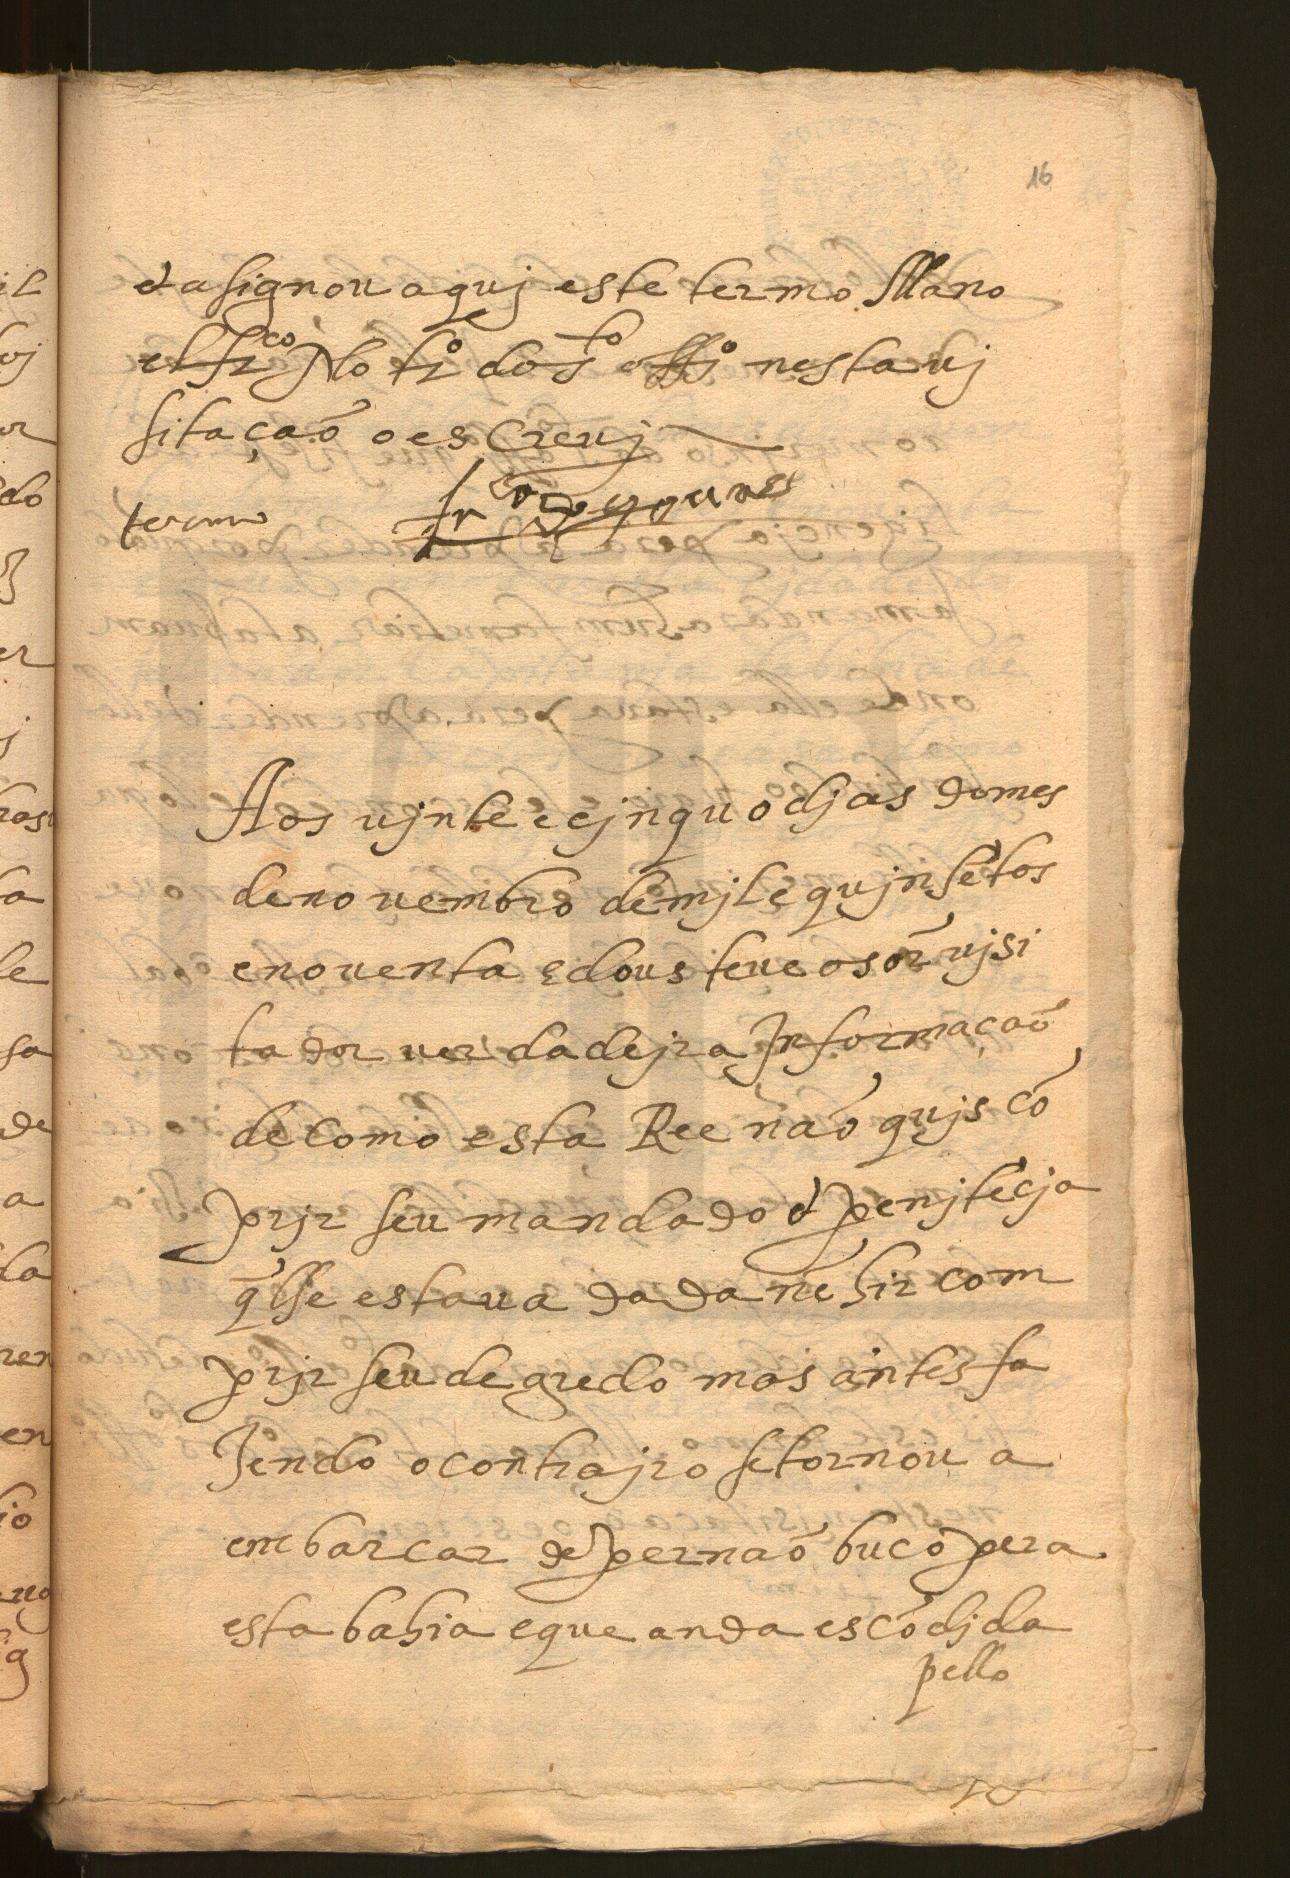 16
e asignou aquj este termo Mano
el frco No tro do sto offo nesta vj
sitação o escreuj
termo
Aos ujnte e cjnquo djas domes
de nouembro de mjl e qujnsẽtos
e nouenta e dous teue o sõr vjsi
tador uerdadejra Informação
de como esta Ree não qujs cõ
prjr seu mandado e penjtẽcja
q̃ lhe estaua dada nẽ hir com
prjr seu degredo mas antes fa
zendo o contrajro se tornou a
embarcar de pernaõbuco pera
esta bahia e que anda escõdjda
pello